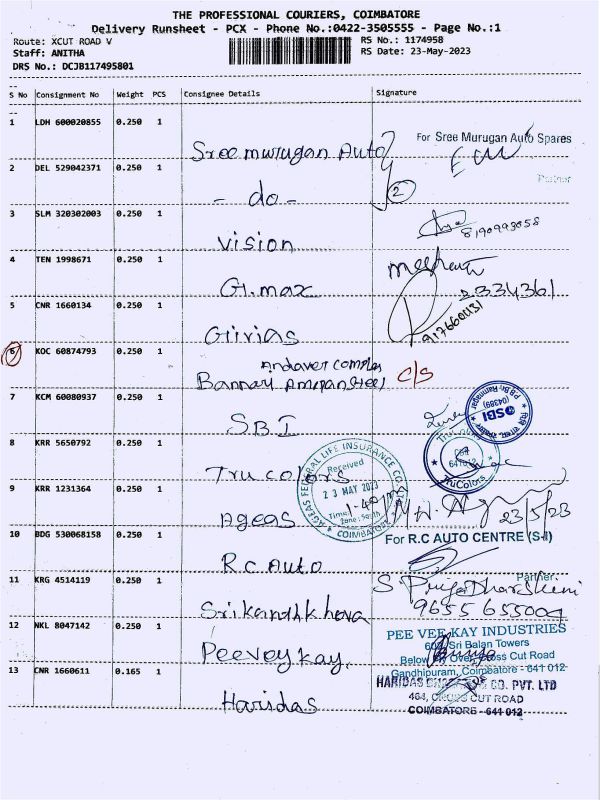 THE PROFESSIONAL COURIERS, COIMBATORE
Delivery Runsheet - PCX - Phone No.:0422-3505555 - Page No.:1
Route: XCUT ROAD V
RS No.: 1174958
Staff: ANITHA
RS Date: 23-May-2023
DRS No.: DCJB117495801
S No Consignment No Weight PCS Consignee Details Signature
1 LDH 600020855 0.250 1
For Sree Murugan Auto Spares
Sree murugan Auto
Partner
2 DEL 529042371 0.250 1
2
- do -
3 SLM 320302003 0.250 1
Vision
4 TEN 1998671 0.250 1
G.max
334361
5 CNR 1660134 0.250 1
Givias
6 KOC 60874793 0.250 1
Bannari Amman Steel
C/S
7 KCM 60080937 0.250 1
SBI
SBI
8 KRR 5650792 0.250 1
Tru colors
TruColors
641012
9 KRR 1231364 0.250 1
Ageas
AGEAS FEDERAL LIFE INSURANCE CO. LTD
Received
23 MAY 2023
Time:
Zone: South
COIMBATORE
23/5/23
10 BDG 530068158 0.250 1
For R.C AUTO CENTRE (S-I)
Rc Auto
Partner.
11 KRG 4514119 0.250 1
S Priya Dharshini
9655655009
12 NKL 8047142 0.250 1
PEE VEE KAY INDUSTRIES
Sri Balan Towers
Peevey kay.
Cross Cut Road
Gandhipuram, Coimbatore - 641 012
13 CNR 1660611 0.165 1
HARIDAS CO. PVT. LTD
Haridas
CROSS CUT ROAD
COIMBATORE - 641 012